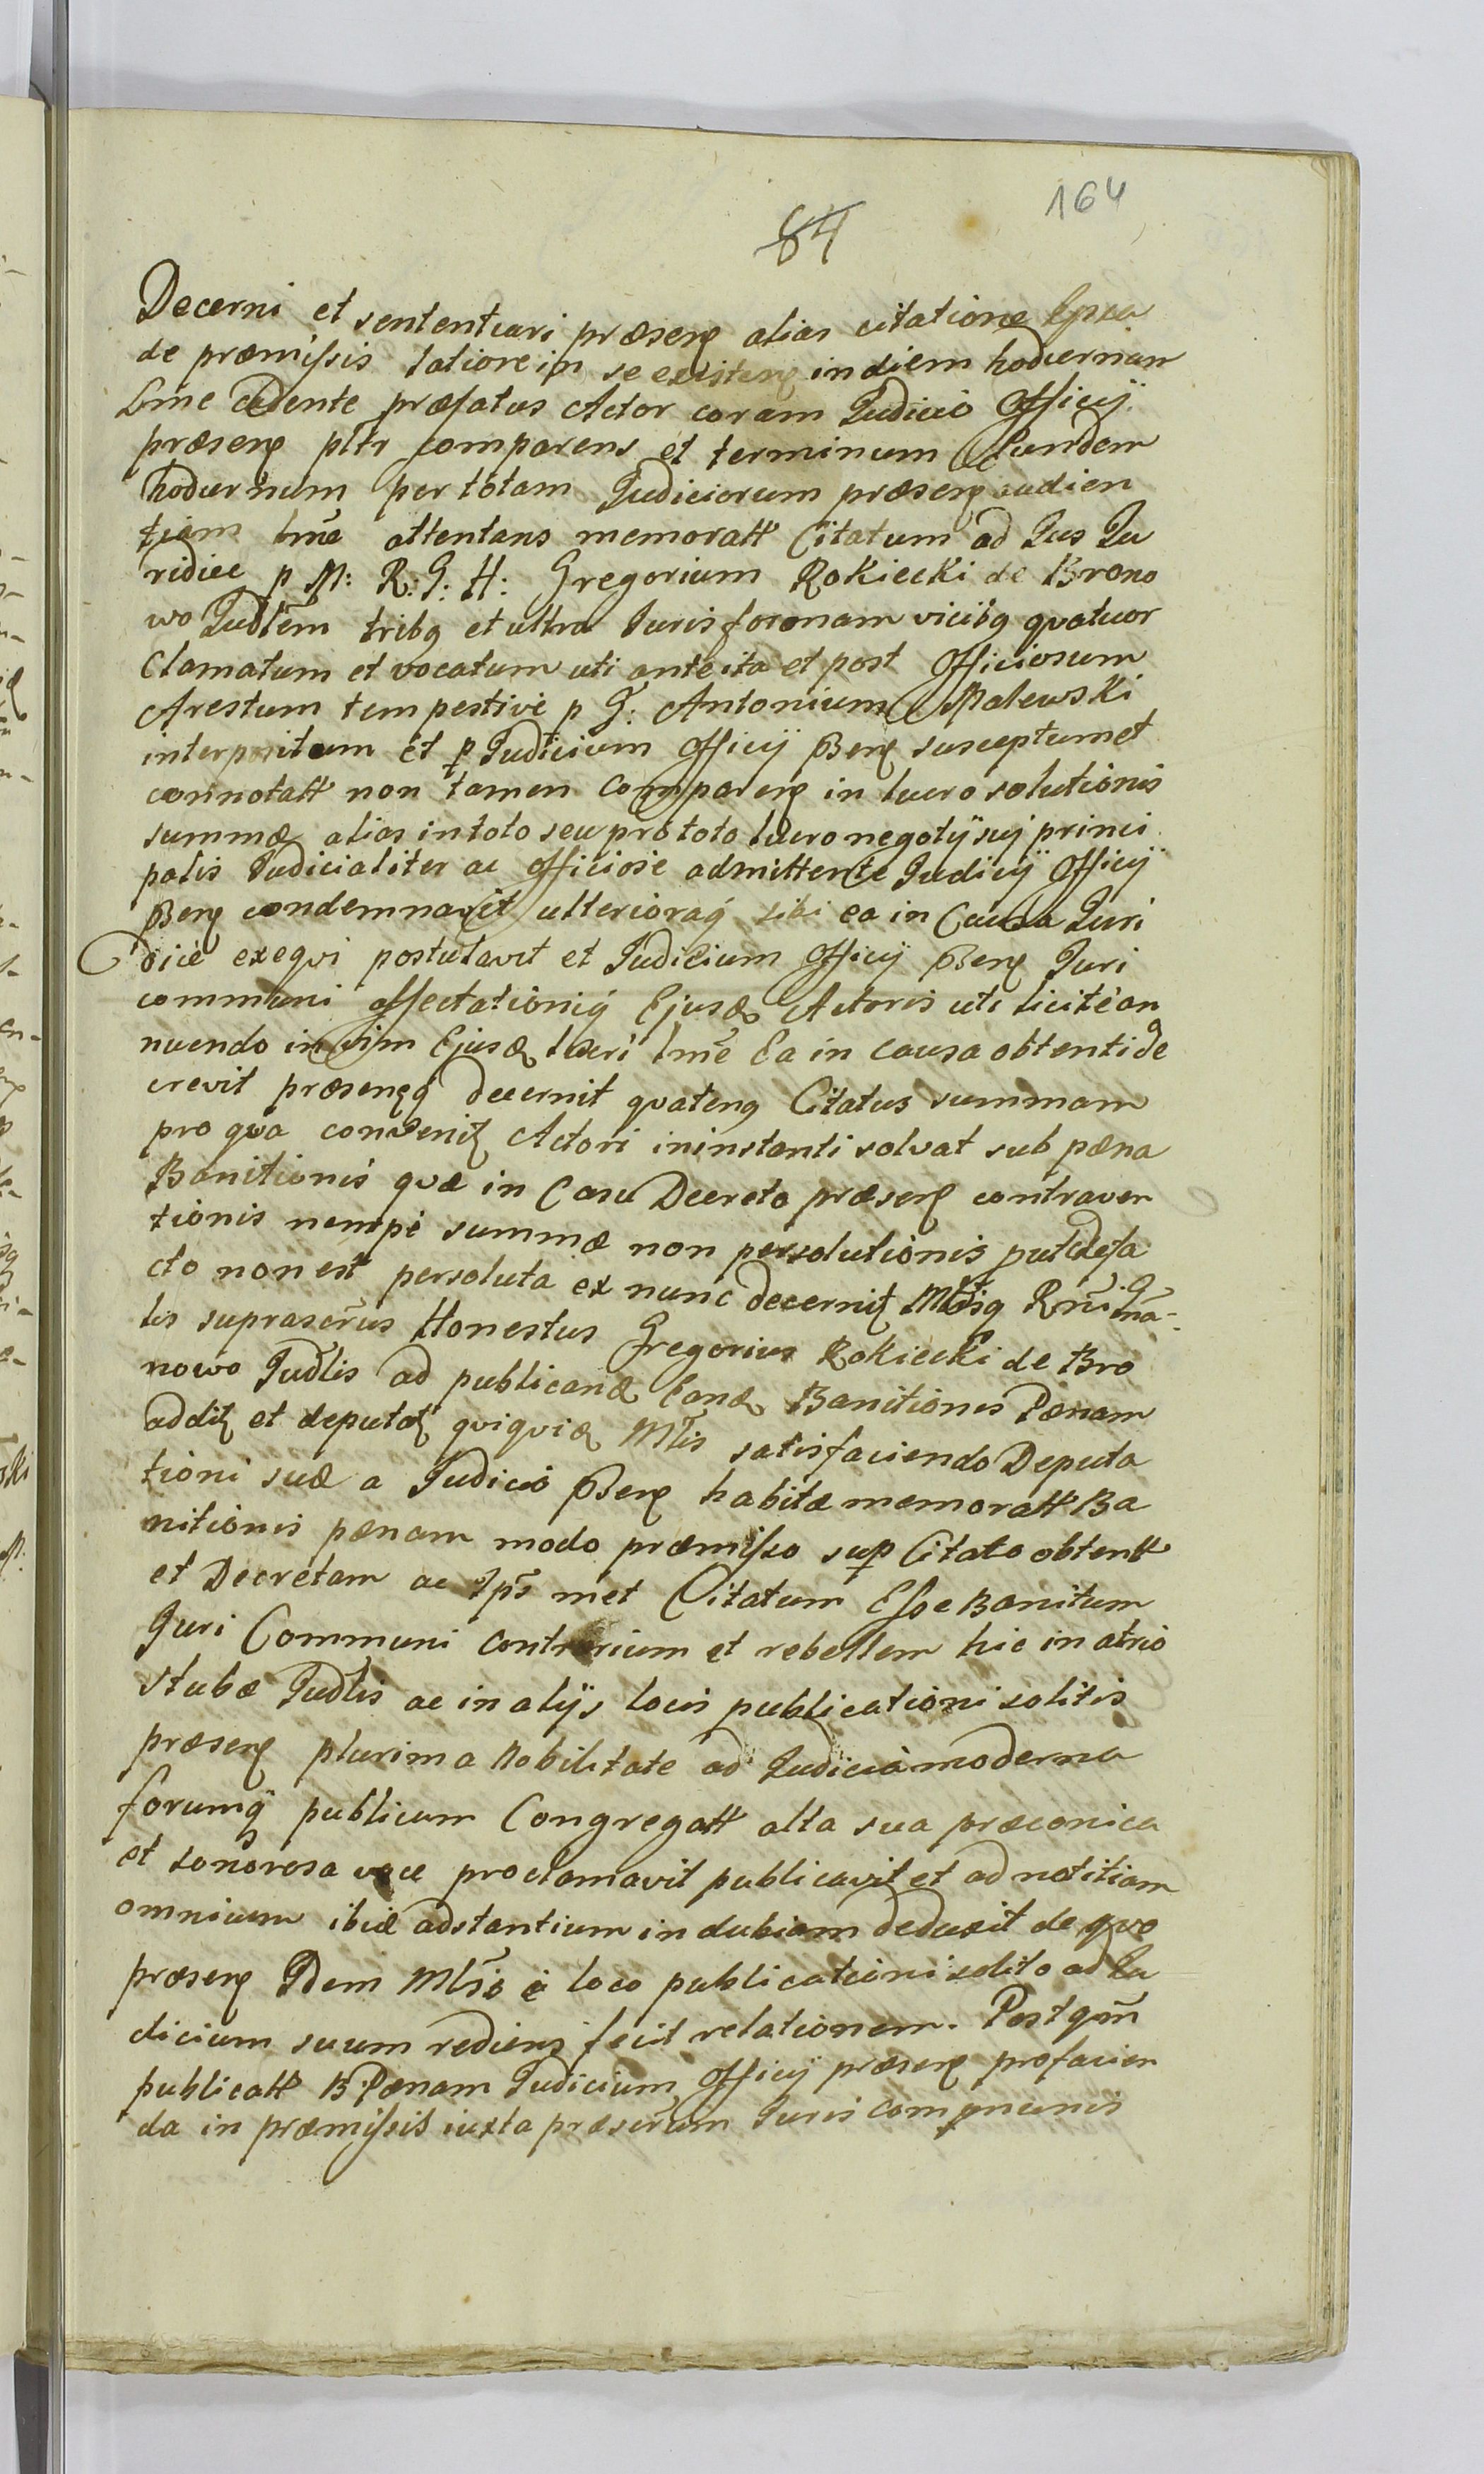 164
84
Decerni et sententiari præsenꝭ alias citatione
de præmissis latiore in se existenꝭ in diem hodiernam
Lime cedente præfatus Actor coram Judicio Officij
præsenꝭ pltr comparens et terminum Eundem
hodiernum per totam Judiciorum præsenꝭ audien
tiam lme attentans memoratt Citatum ad Jus Ju
ridice p M: R: G: H: Gregorium Rokiecki de Brono
wo Judlem tribq et ultra Juris formam vicibq quatuor
Clamatum et vocatum uti ante ita et post Officiosum
Arestum tempestive p G: Antonium Malewski
interpositum et p Judicium Officij Psenꝭ susceptum et
connotatt non tamen Comparenꝭ in lucro solutionis
summæ alias in toto seu pro toto lucro negotij sui princi
palis Judicialiter ac Officiose admittente Judicij Officij
Psenꝭ condemnavit ulterioraq sibi ea in Causa Juri
dice exequi postulavit et Judicium Officij Psenꝭ Juri
communi affectationiq Ejusd Actoris uti licite an
nuendo in vim Ejusd lucri lme Ea in causa obtenti de
crevit præsenꝭq decernit quatenq Citatus summam
pro qua convenitꝭ Actori in instanti solvat sub pæna
Banitionis quæ in Casu Decreto præsenꝭ contraven
tionis nempe summæ non persolutionis puta defa
cto non est persoluta ex nunc decernitꝭ Mlisq Rni G
lis suprascrus Honestus Gregorius Rokiecki de Bro
nowo Judlis ad publicand Eand Banitionis Pænam
additꝭ et deputatꝭ quiquid Mlis satisfaciendo Deputa
tioni suæ a Judicio Psenꝭ habitæ memoratt Ba
nitionis pænam modo præmisso sup Citato obtentt
et Decretam ac Ips met Citatum Esse Banitum
Juri Communi contrarium et rebellem hic in atrio
Stubæ Judlis ac in alijs locis publicationi solitis
præsenꝭ plurima Nobilitate ad Judicia moderna
forumq publicum Congregatt alta sua præconica
et sonorosa voce proclamavit publicavit et ad notitiam
omnium ibid adstantium indubiam deduxit de quo
præsenꝭ Idem Mlis è loco publicationi solito ad Iu
dicium suum rediens fecit relationem. Postqm
publicatt B. Pænam Judicium Officij præsenꝭ pro facien
da in præmissis iuxta præscrum Juris communis